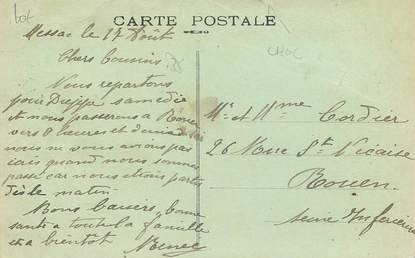 CARTE POSTALE
Messac le 17 Août
Chers Cousins
Nous repartons
pour Dieppe samedie
et nous passerons a Rouen
vers 8 heures et demie
nous ne vous avions pas
quand nous sommes
passé car nous étions partis
dès le matin
Bons baisers, bonne
santé a toute la famille
et a bientôt
Mr et Mme Cordier
26 Rue St Nicaise
Rouen
Seine Inferieure